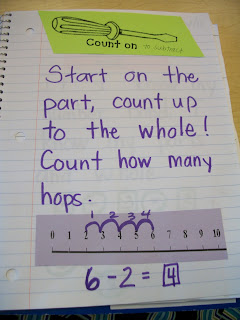 Count on to subtract
Start on the
part, count up
to the whole!
Count how many
hops.
1 2 3 4
0 1 2 3 4 5 6 7 8 9 10
6-2=4